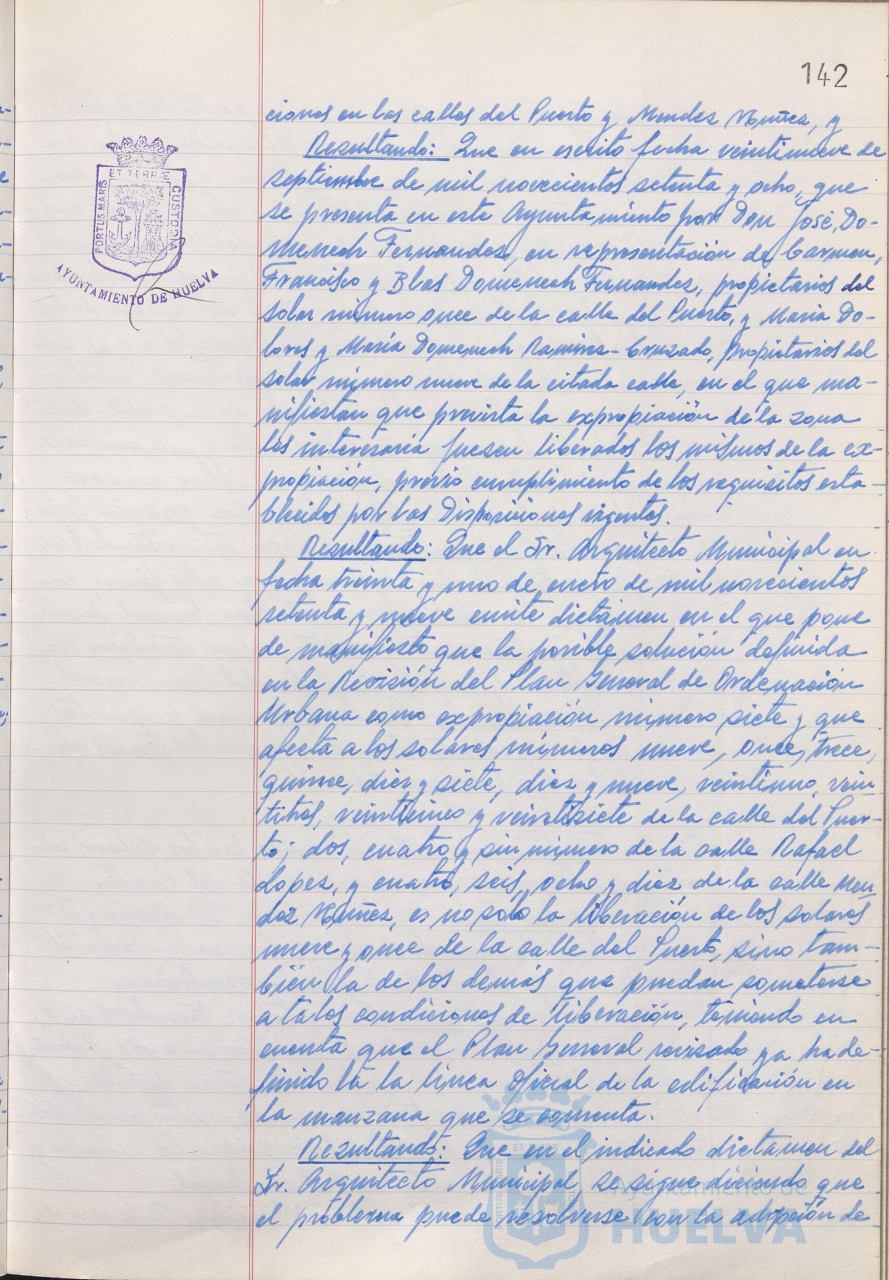 142
ciones en las calles del Puerto y Mendez Nuñez, y
Resultando: Que en escrito fecha veintinueve de
septiembre de mil novecientos setenta y ocho, que
se presenta en este Ayuntamiento por Don José Do-
menech Fernandez, en representación de Carmen,
Francisco y Blas Domenech Fernandez, propietarios del
solar número once de la calle del Puerto, y Maria Do-
lores y María Domenech Ramirez-Cruzado, propietarios del
solar número nueve de la citada calle, en el que ma-
nifiestan que prevista la expropiación de la zona
les interesaria fuesen liberados los mismos de la ex-
propiación, previo cumplimiento de los requisitos esta-
blecidos por las Disposiciones vigentes.
Resultando: Que el Sr. Arquitecto Municipal en
fecha treinta y uno de enero de mil novecientos
setenta y nueve emite dictamen en el que pone
de manifiesto que la posible solución definida
en la Revisión del Plan General de Ordenación
Urbana como expropiación número siete y que
afecta a los solares números nueve, once, trece,
quince, diez y siete, diez y nueve, veintiuno, vein-
titres, veinticinco y veintisiete de la calle del Puer-
to; dos, cuatro y sin número de la calle Rafael
Lopez, y cuatro, seis, ocho y diez de la calle Men-
dez Nuñez, es no solo la liberación de los solares
nueve y once de la calle del Puerto, sino tam-
bién la de los demás que puedan someterse
a tales condiciones de liberación, teniendo en
cuenta que el Plan General revisado ya ha de-
finido la la línea oficial de la edificación en
la manzana que se comenta.
Resultando: Que en el indicado dictamen del
Sr. Arquitecto Municipal se sigue diciendo que
el problema puede resolverse con la adopción de
PORTUS MARIS
ET TERRAE
CUSTODIA
AYUNTAMIENTO DE HUELVA
Ayuntamiento de
HUELVA